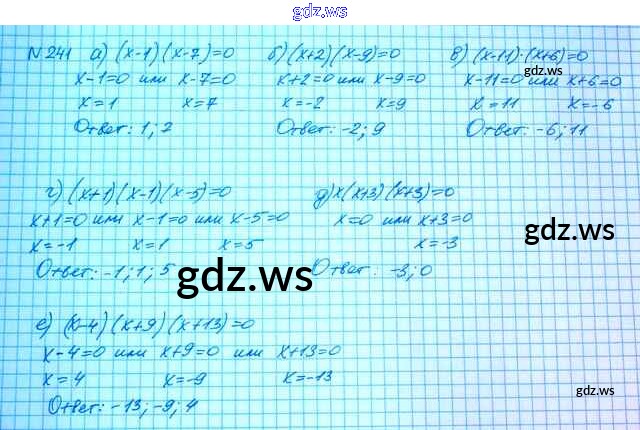 gdz.ws
N 241 а) (x-1)(x-7)=0 б) (x+2)(x-9)=0 в) (x-11)·(x+6)=0
gdz.ws
x-1=0 или x-7=0 x+2=0 или x-9=0 x-11=0 или x+6=0
x=1 x=7 x=-2 x=9 x=11 x=-6
Ответ: 1; 7 Ответ: -2; 9 Ответ: -6; 11
г) (x+1)(x-1)(x-5)=0 д) x(x+3)(x+3)=0
x+1=0 или x-1=0 или x-5=0 x=0 или x+3=0
gdz.ws
x=-1 x=1 x=5 x=-3
Ответ: -1; 1; 5 Ответ: -3; 0
gdz.ws
е) (x-4)(x+9)(x+13)=0
x-4=0 или x+9=0 или x+13=0
x=4 x=-9 x=-13
gdz.ws
Ответ: -13; -9; 4